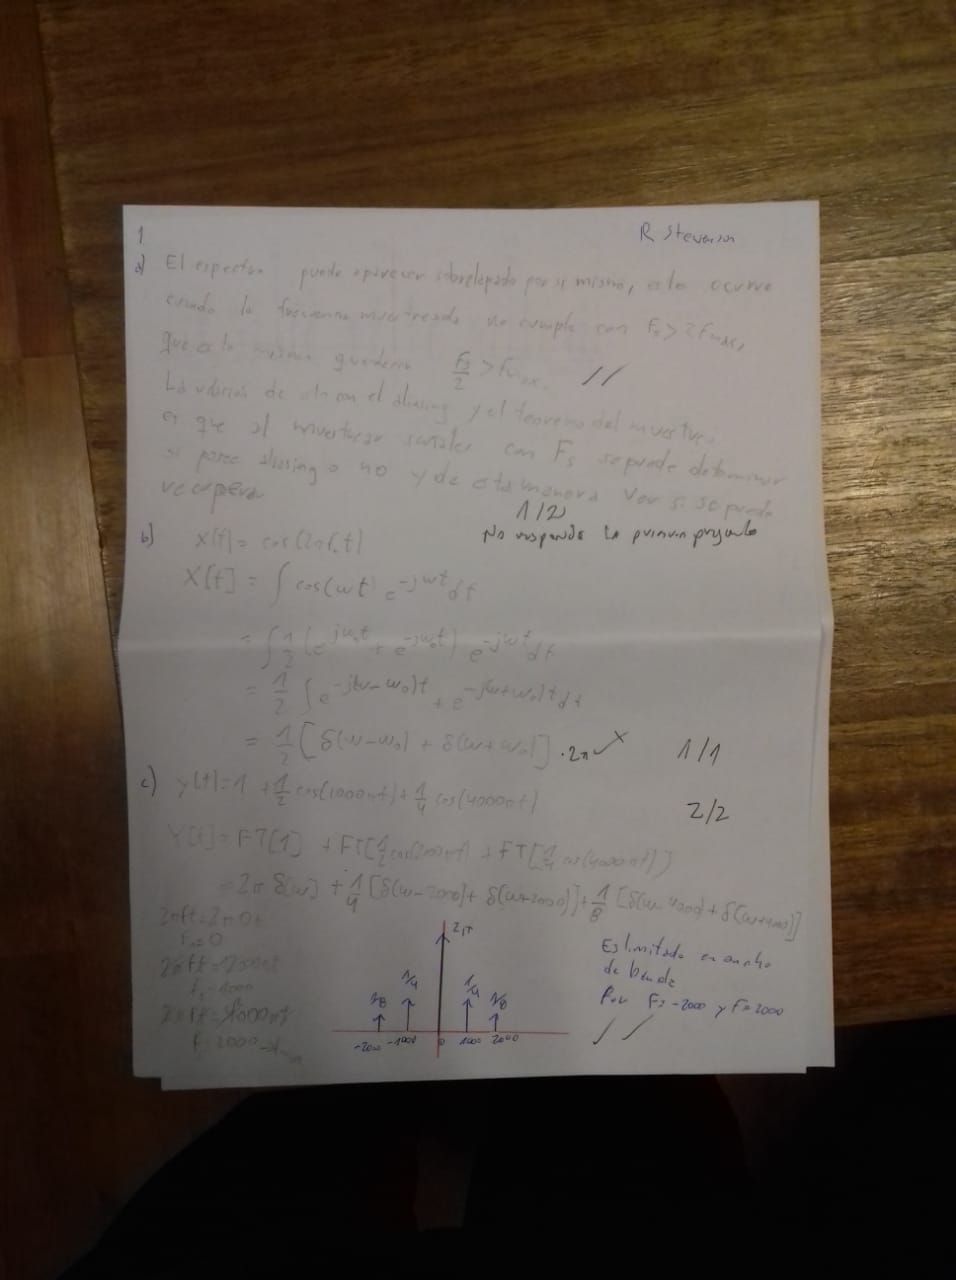 1
R Stevenson
a) El espectro puede aparecer sobrelapado por si mismo, esto ocurre
cuando la frecuencia muestreada no cumple con Fs > 2Fmax,
que es lo mismo quedaria Fs/2 > Fmax. //
La de esto con el aliasing y el teorema del muestreo
es que al muestrear señales con Fs se puede determinar
si aliasing o no y de esta manera ver si se puede
recuperar
1/2
No responde la primera pregunta
b) X(t) = cos(2πf₀t)
X[t] = ∫ cos(wt) e^-jwt dt
= ∫ 1/2 (e^jw₀t + e^-jw₀t) e^-jwt dt
= 1/2 ∫ e^-j(w-w₀)t + e^-j(w+w₀)t dt
= 1/2 [δ(w-w₀) + δ(w+w₀)] · 2π
1/1
c) y[t] = 1 + 1/2 cos(2000πt) + 1/4 cos(4000πt)
2/2
Y[t] = FT[1] + FT[1/2 cos(2000πt)] + FT[1/4 cos(4000πt)]
= 2π δ(w) + 1/4 [δ(w-2000) + δ(w+2000)] + 1/8 [δ(w-4000) + δ(w+4000)]
2πft = 2π0t
F₁ = 0
2πft = 2000πt
f₂ = 1000
2πft = 4000πt
f₃ = 2000
2π
1/8 1/4 1/4 1/8
-2000 -1000 0 1000 2000
Es limitado en ancho
de banda
Por F = -2000 y F = 2000
//